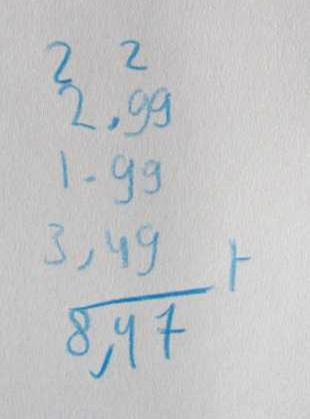 2 2
2,99
1.99
3,49 +
8,47